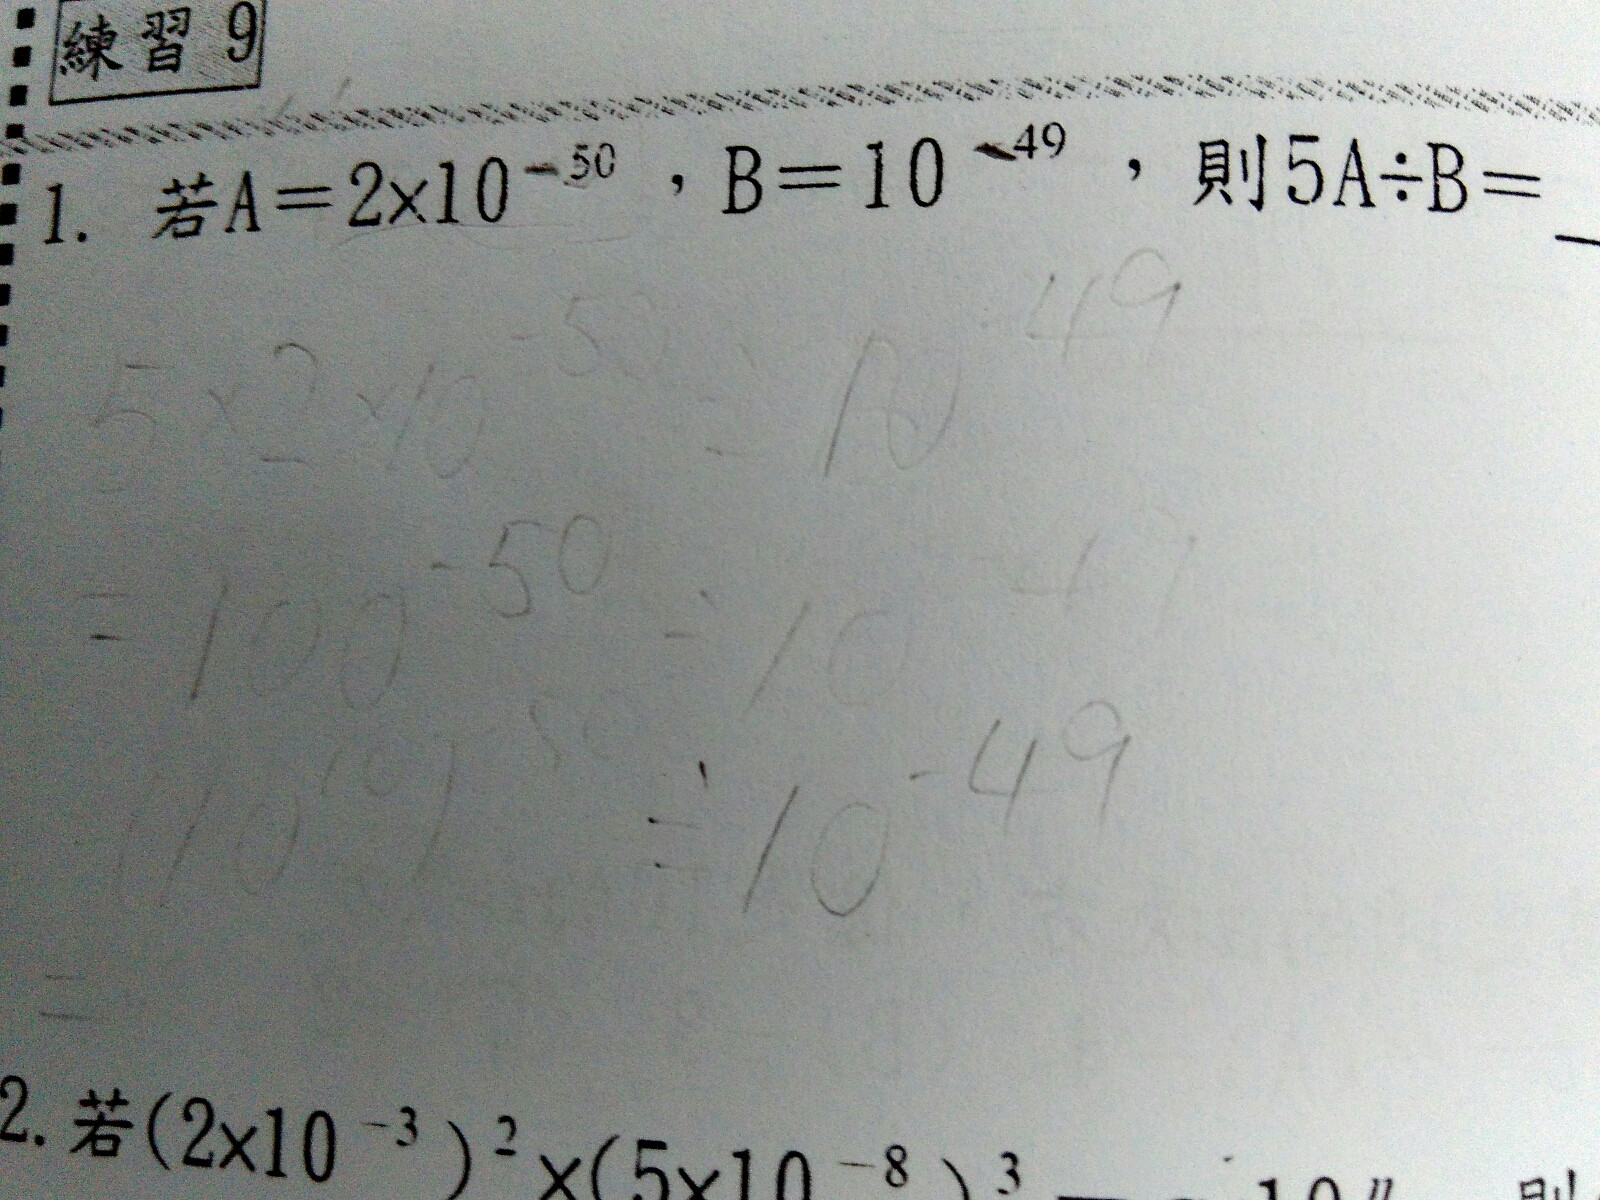 練習 9
1. 若A=2×10⁻⁵⁰，B=10⁻⁴⁹，則5A÷B=
5×2×10⁻⁵⁰ ÷ 10⁻⁴⁹
=100⁻⁵⁰ ÷ 10⁻⁴⁹
(10¹⁰)⁻⁵⁰ ÷ 10⁻⁴⁹
=
2. 若(2×10⁻³)²×(5×10⁻⁸)³=